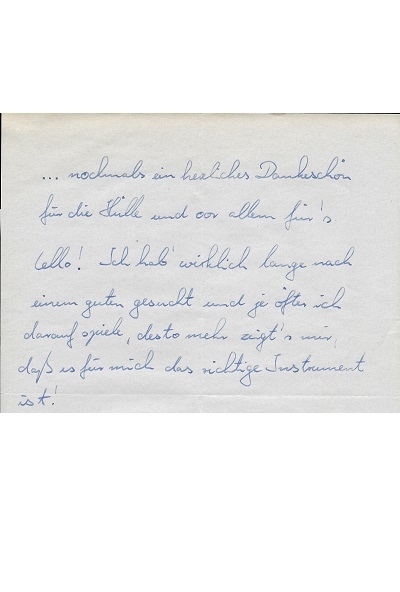 ... nochmals ein herzliches Dankeschön
für die Hülle und vor allem für's
Cello! Ich hab' wirklich lange nach
einem guten gesucht und je öfter ich
darauf spiele, desto mehr zeigt's mir,
daß es für mich das richtige Instrument
ist!